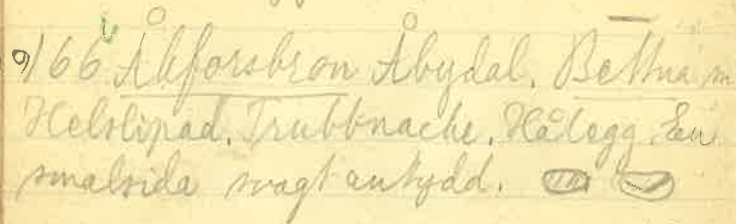 9) 166 Åkforsbron Åbydal. Bettna
Helslipad. Trubbnacke. Hålegg. En
smalsida svagt antydd.